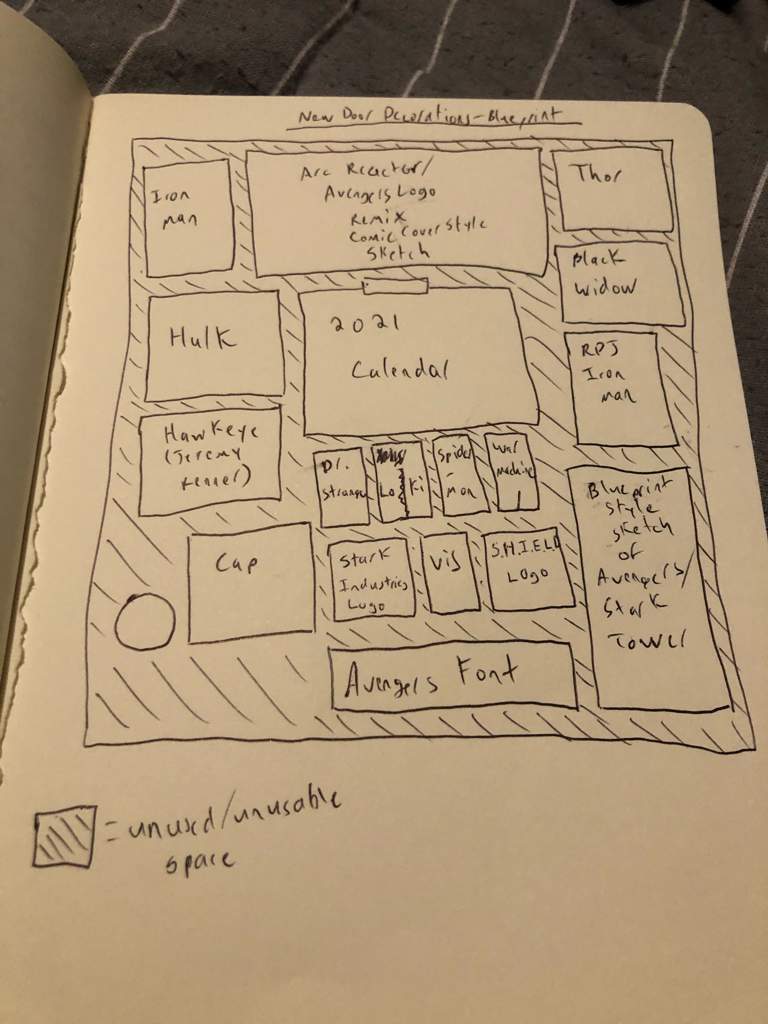 New Door Decorations-Blueprint
Iron
man
Arc Reactor/
Avengers Logo
Remix
Comic Cover Style
Sketch
Thor
Black
Widow
Hulk
2021
Calendar
RDJ
Iron
man
Hawkeye
(Jeremy
Renner)
Dr.
Strange
Loki
Spider
-man
War
machine
Blueprint
Style
Sketch
of
Avengers/
Stark
Tower
Cap
Stark
Industries
Logo
Vis
S.H.I.E.L.D
Logo
Avengers Font
= unused/unusable
space